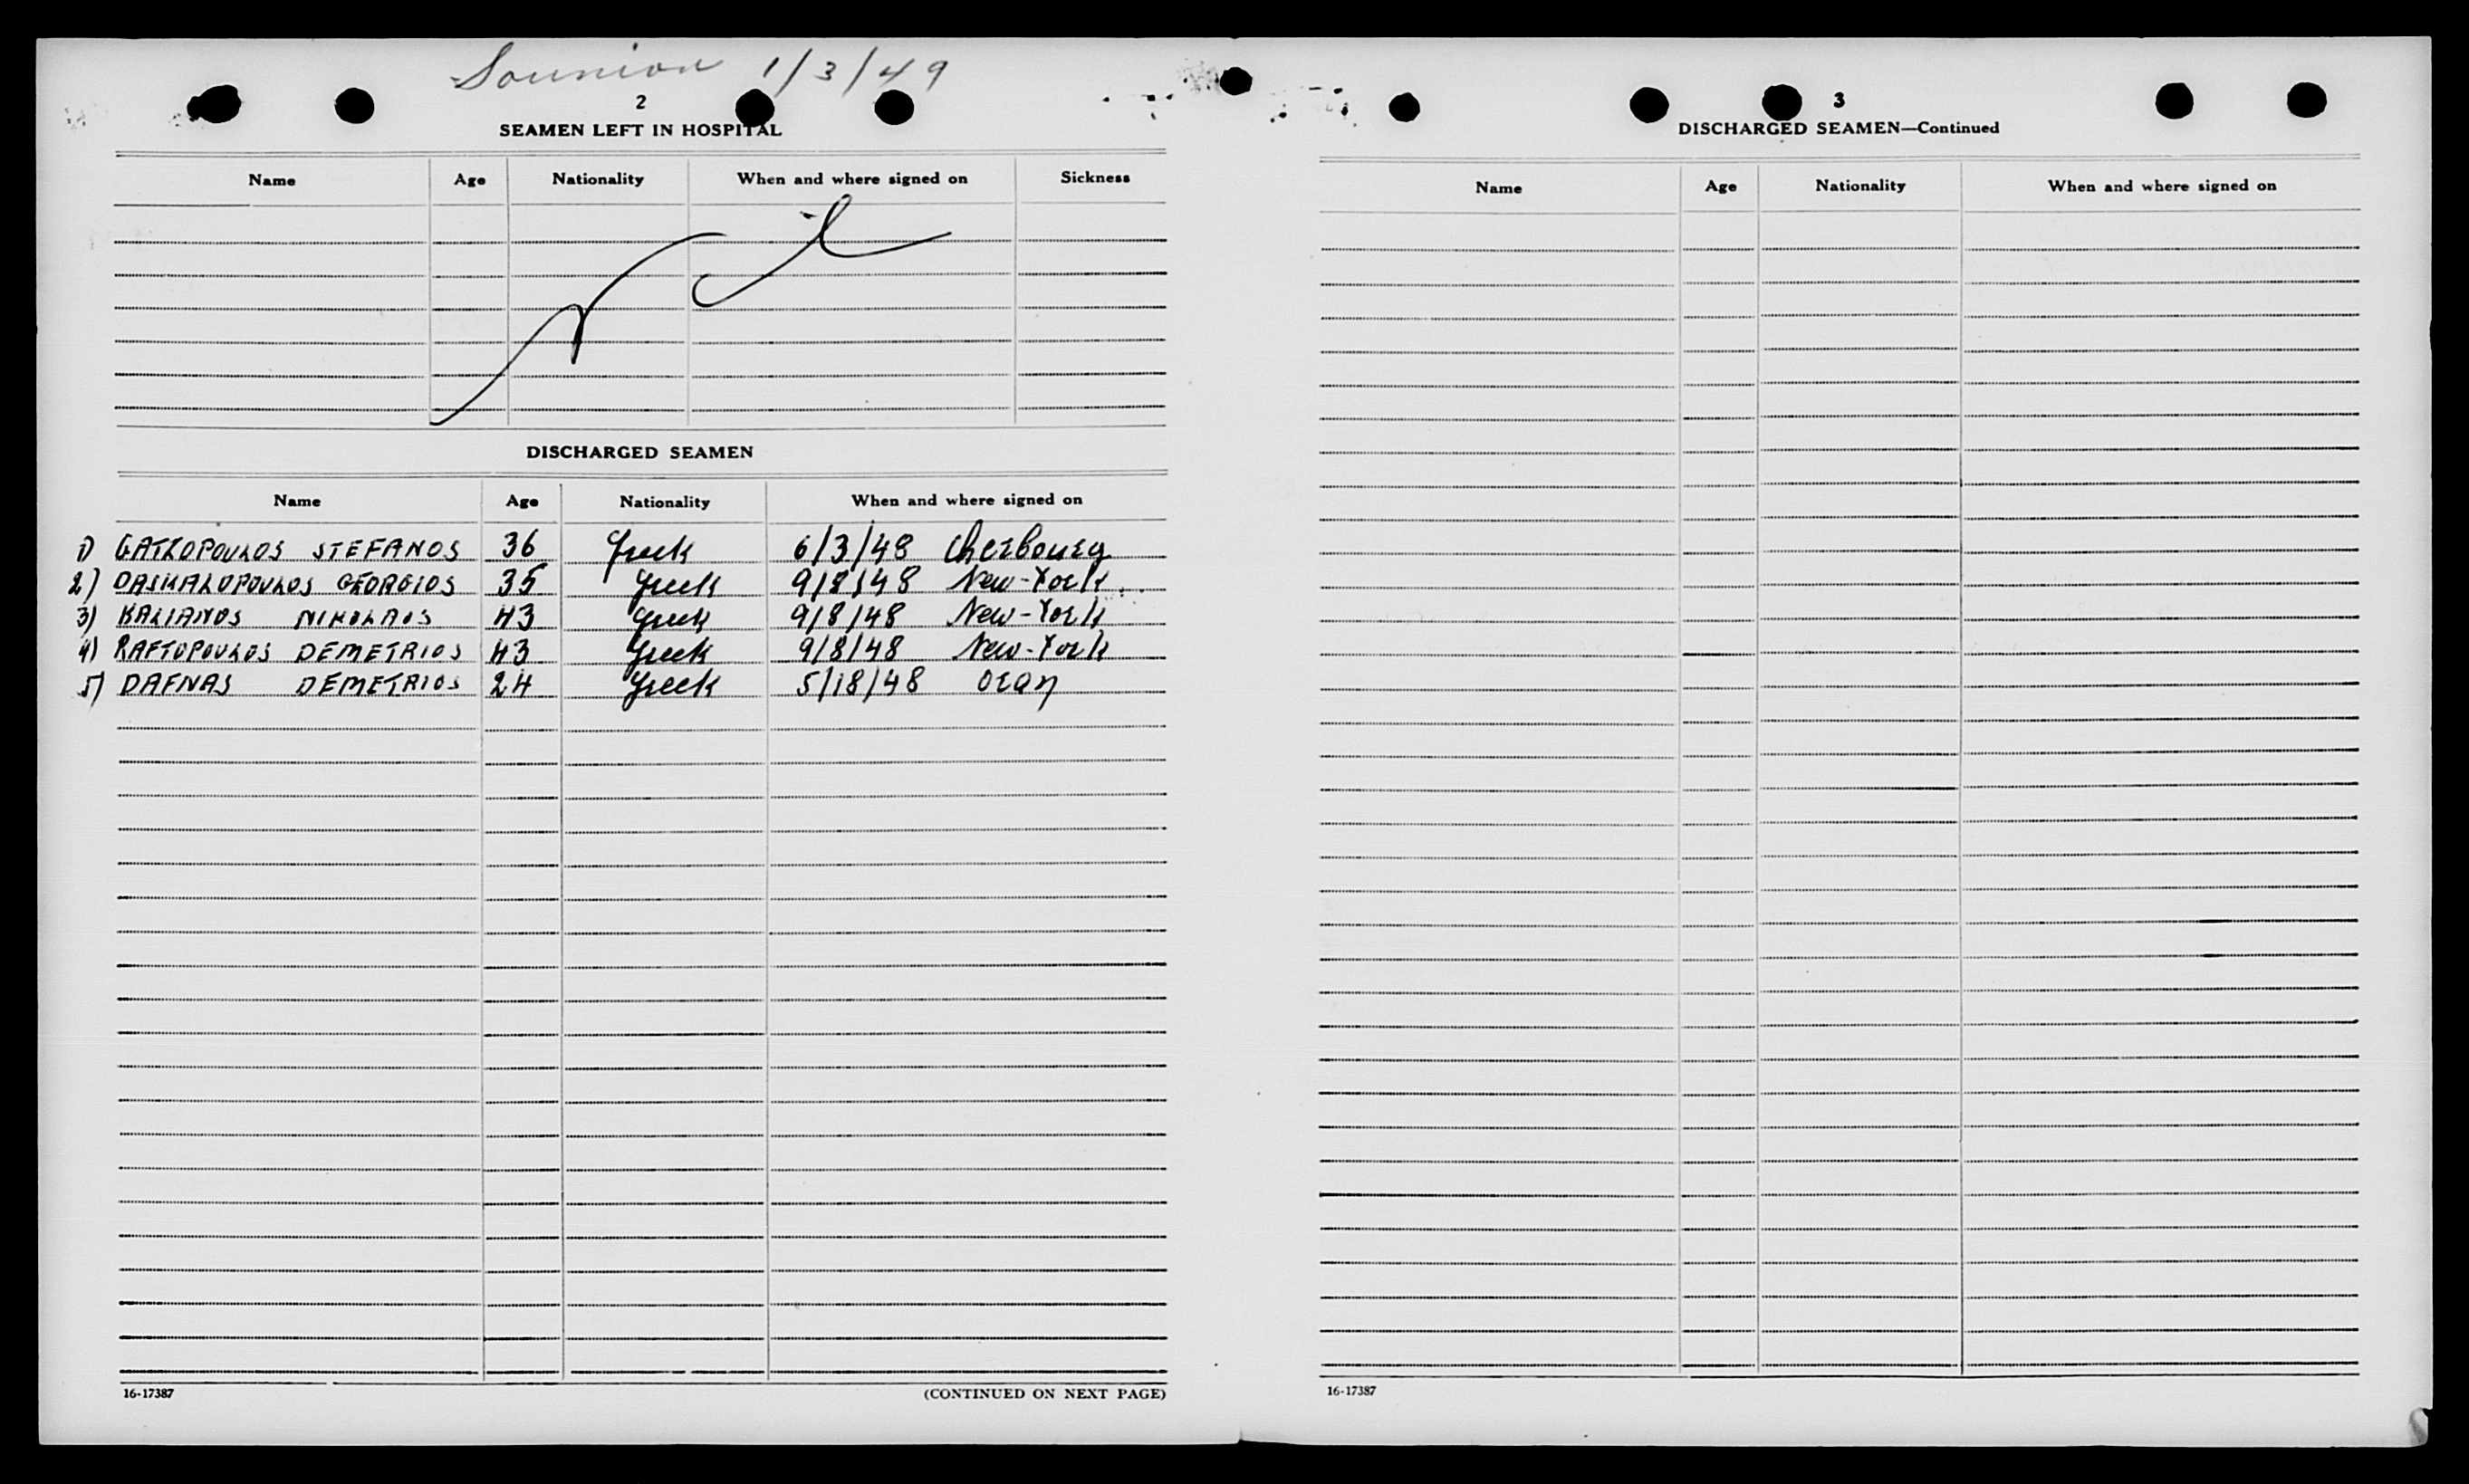 Sounion 1/3/49
2
SEAMEN LEFT IN HOSPITAL
Name Age Nationality When and where signed on Sickness
nil
DISCHARGED SEAMEN
Name Age Nationality When and where signed on
1) GATZOPOULOS STEFANOS 36 Greek 6/3/48 Cherbourg
2) DASKALOPOULOS GEORGIOS 35 Greek 9/8/48 New-York
3) KALIANOS NIKOLAOS 43 Greek 9/8/48 New-York
4) RAFTOPOULOS DEMETRIOS 43 Greek 9/8/48 New-York
5) DAFNAS DEMETRIOS 24 Greek 5/18/48 Oran
16-17387 (CONTINUED ON NEXT PAGE)
3
DISCHARGED SEAMEN—Continued
Name Age Nationality When and where signed on
16-17387